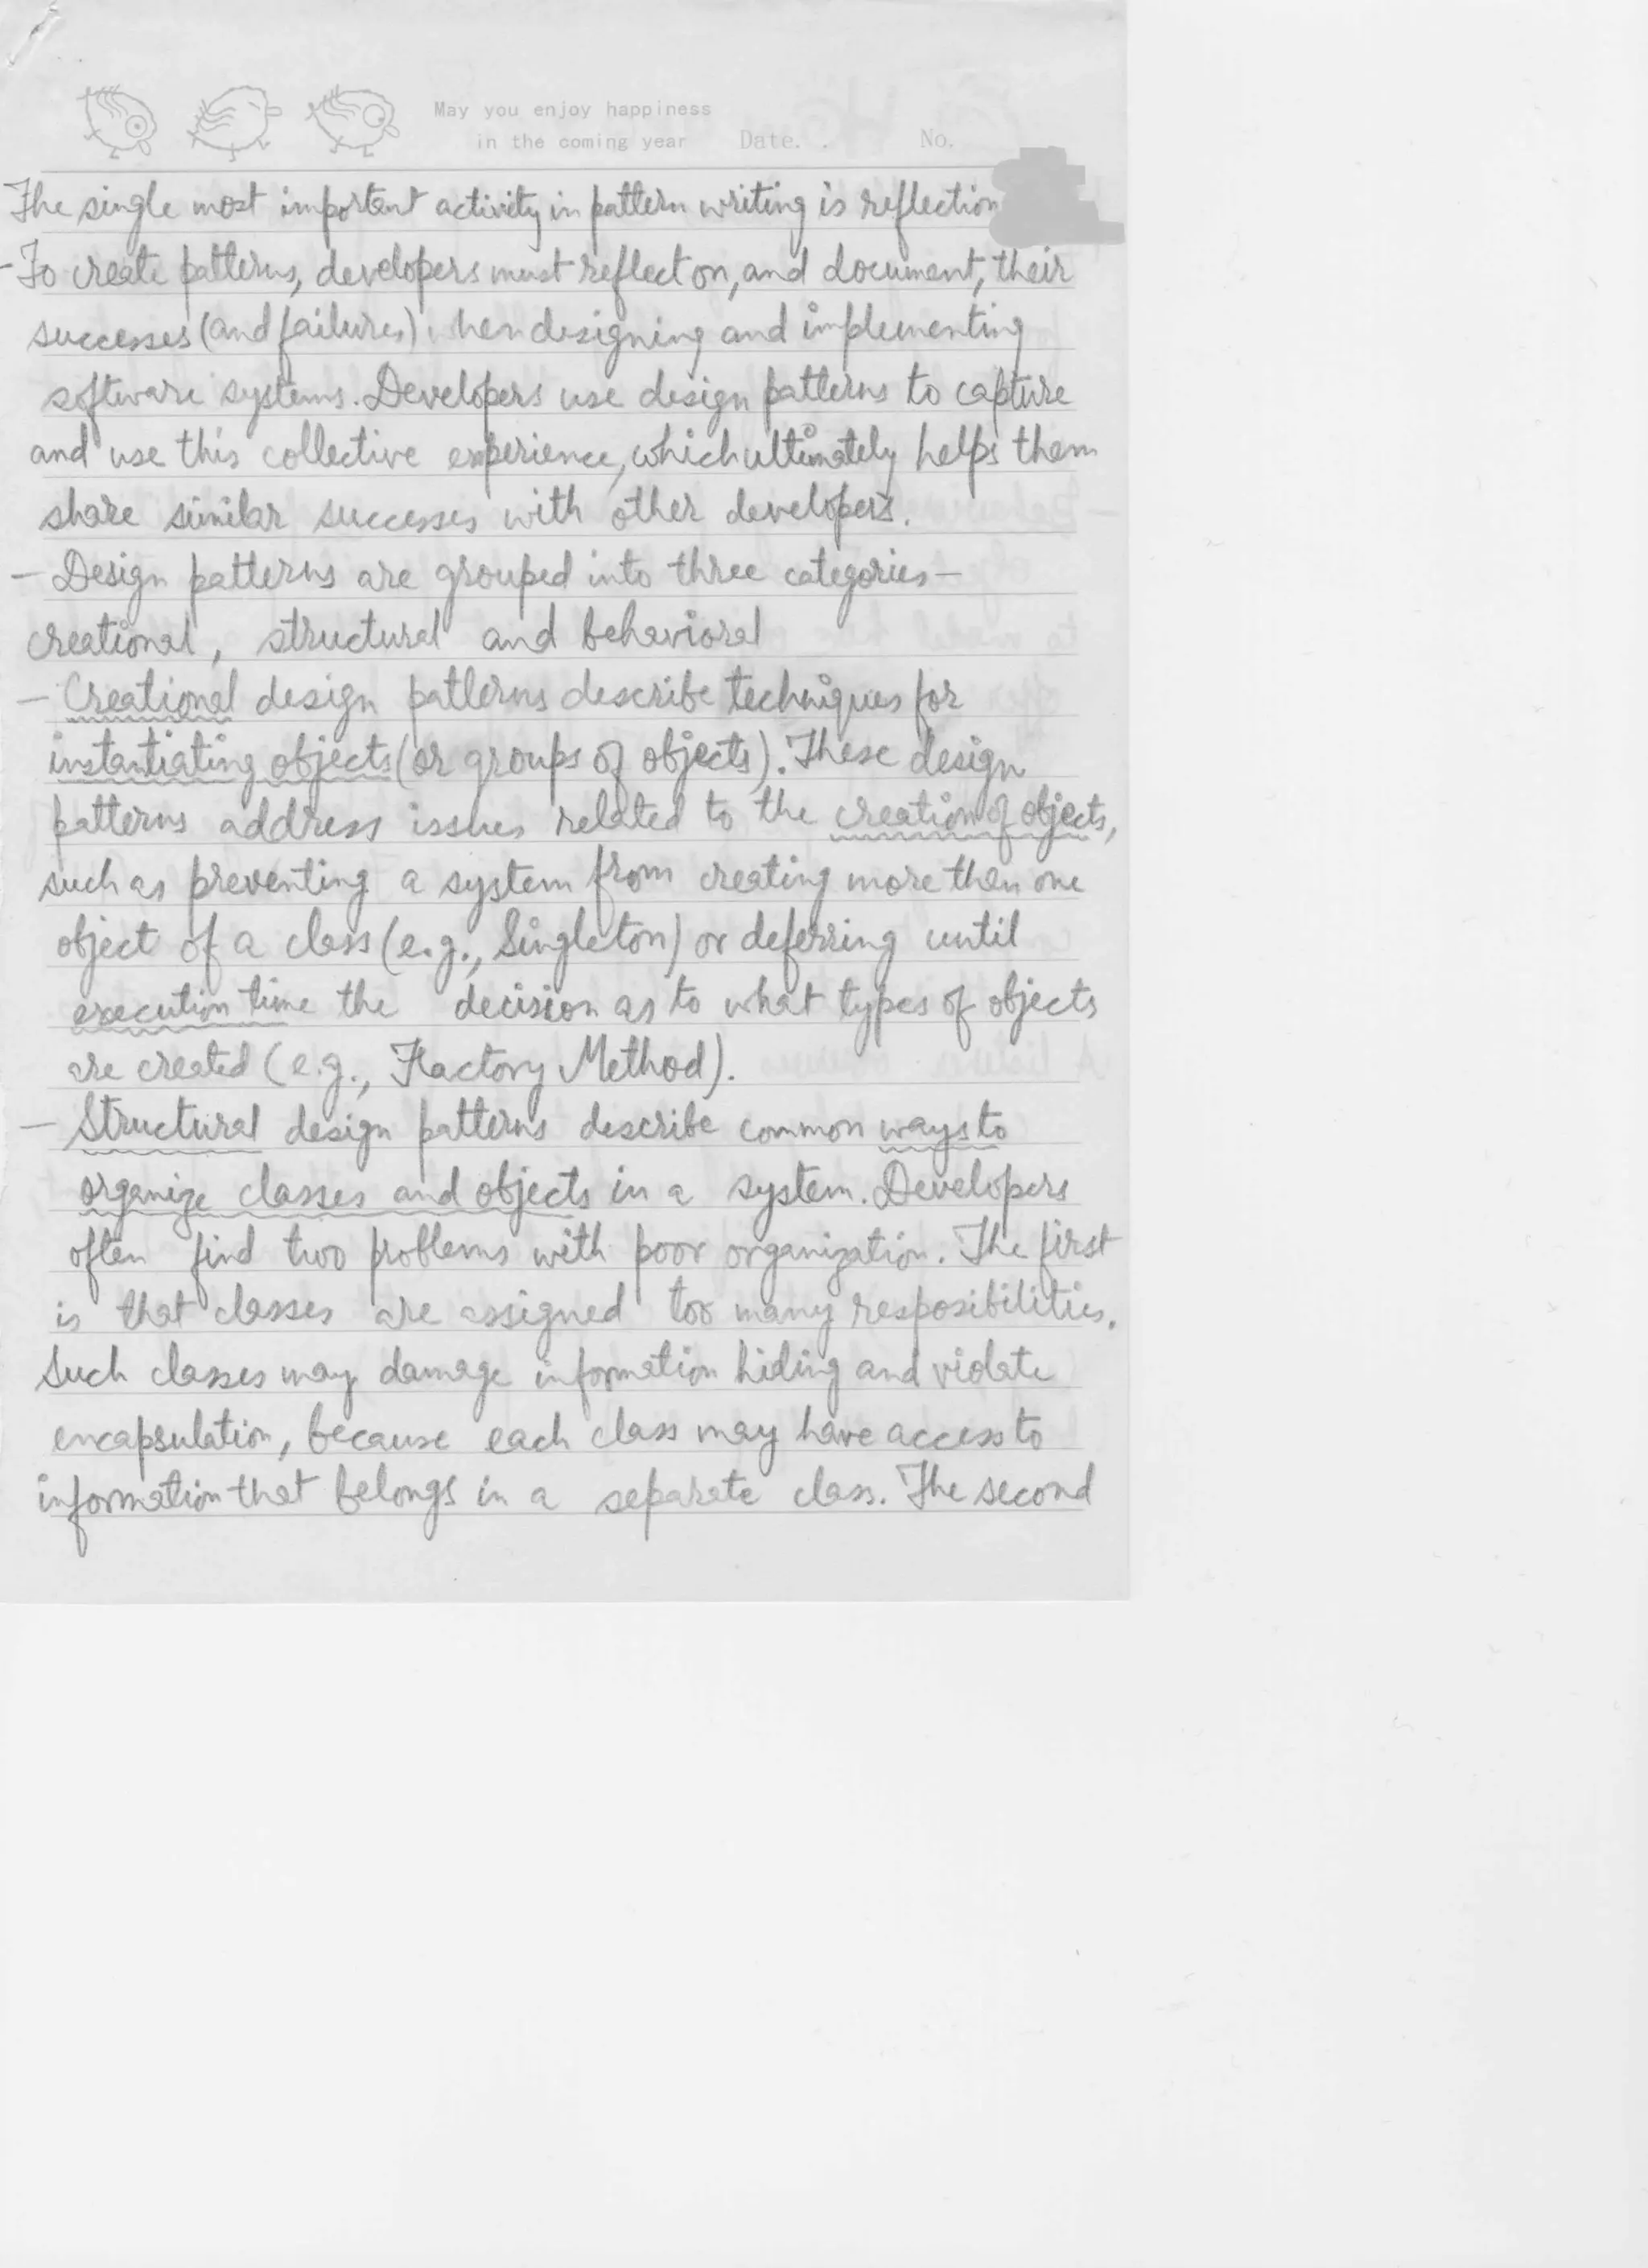 May you enjoy happiness
in the coming year Date. . No.
The single most important activity in pattern writing is reflection
- To create patterns, developers must reflect on, and document, their
successes (and failures) when designing and implementing
software systems. Developers use design patterns to capture
and use this collective experience, which ultimately helps them
share similar successes with other developers.
— Design patterns are grouped into three categories —
creational, structural and behavioral
— Creational design patterns describe techniques for
instantiating objects (or groups of objects). These design
patterns address issues related to the creation of objects,
such as preventing a system from creating more than one
object of a class (e.g., Singleton) or deferring until
execution time the decision as to what types of objects
are created (e.g., Factory Method).
— Structural design patterns describe common ways to
organize classes and objects in a system. Developers
often find two problems with poor organization. The first
is that classes are assigned too many resposibilities.
Such classes may damage information hiding and violate
encapsulation, because each class may have access to
information that belongs in a separate class. The second